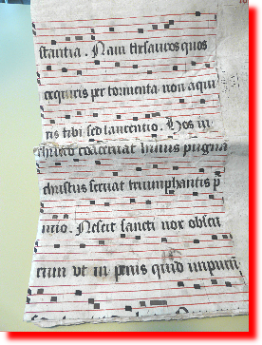 stantia. Nam thesauros quos
exquiris per tormenta non aqui
ris tibi sed laurencio. Hos in
christo coaceruat huius pugna
christus seruat triumphantis p
mio. Nescit sancti nox obscu
rum vt in penis quid impuru